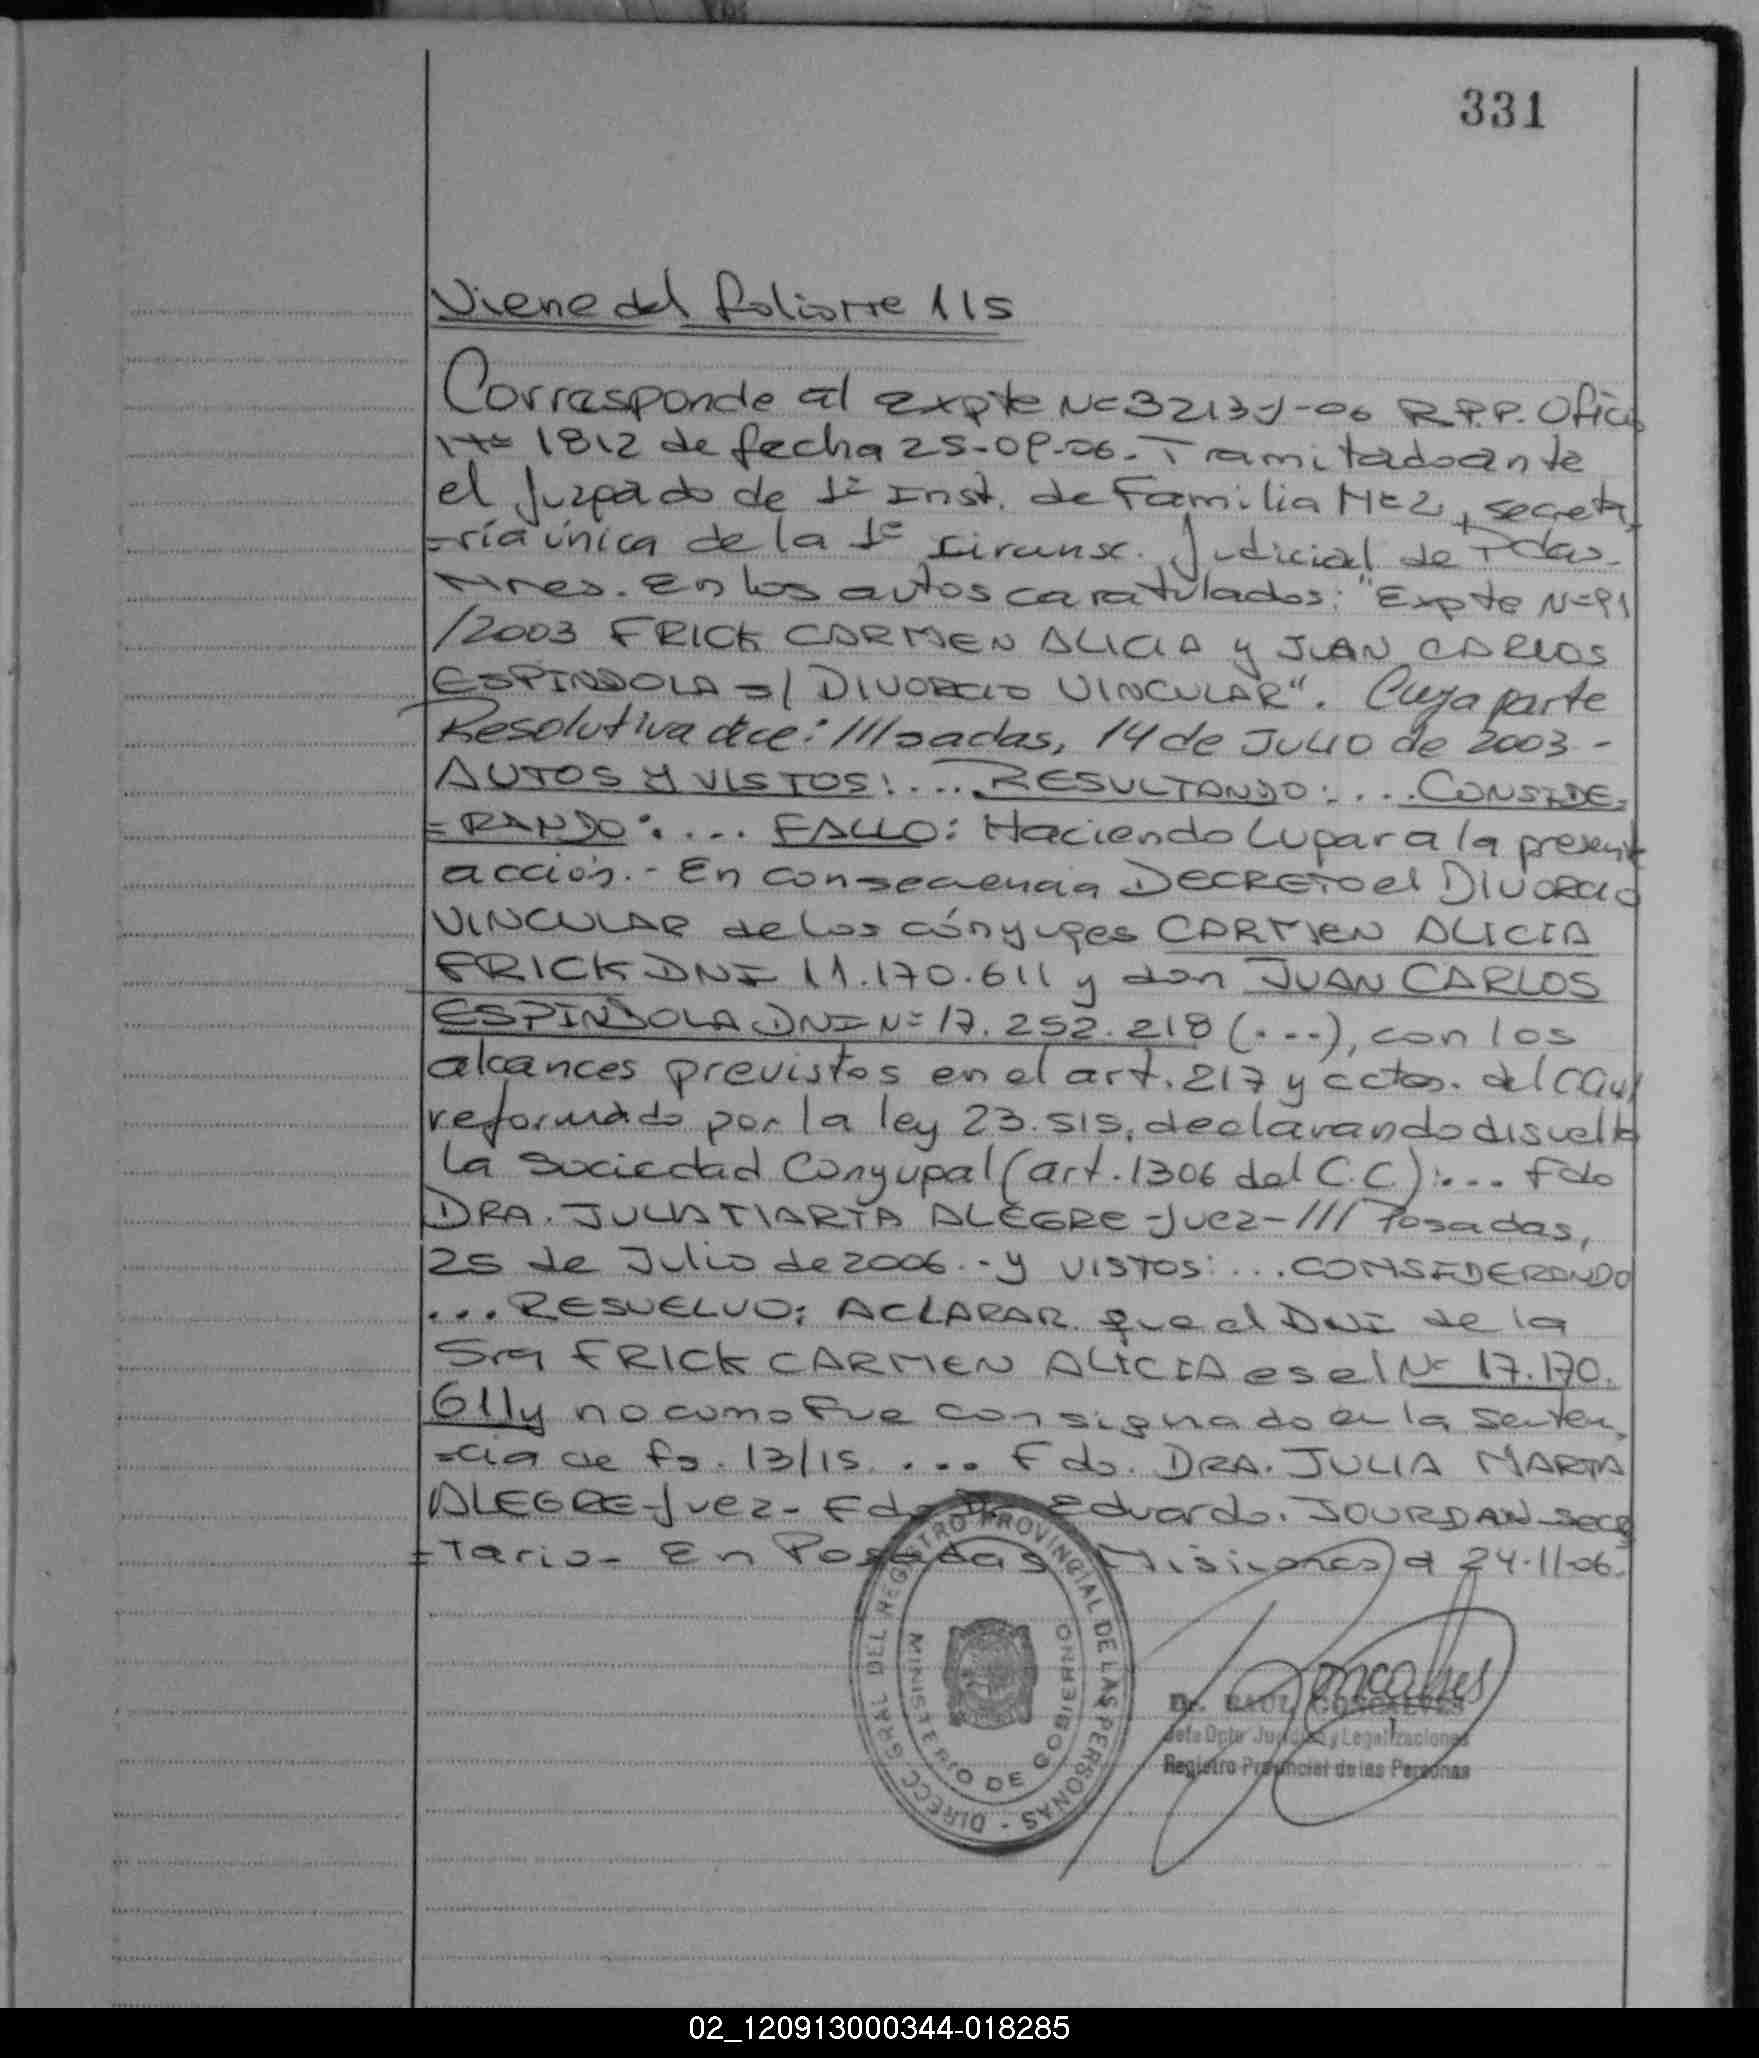 331
Viene del folio nre 115
Corresponde al expte Nº 3213-J-06 R.P.P. Oficio
Nº 1812 de fecha 25-09-06.- Tramitado ante
el Juzgado de 1º Inst. de Familia Nº 2, secreta
=ría única de la 1º circunsc. Judicial de Pdas-
Mnes. En los autos caratulados: "Expte Nº 91
/2003 FRICK CARMEN ALICIA y JUAN CARLOS
ESPINDOLA s/ DIVORCIO VINCULAR". Cuya parte
Resolutiva dice: ///sadas, 14 de JULIO de 2003.-
AUTOS Y VISTOS:.... RESULTANDO:.... CONSIDE=
=RANDO:.... FALLO: Haciendo lugar a la presente
acción.- En consecuencia DECRETO el DIVORCIO
VINCULAR de los cónyuges CARMEN ALICIA
FRICK DNI 11.170.611 y don JUAN CARLOS
ESPINDOLA DNI Nº 17.252.218 (....), con los
alcances previstos en el art. 217 y cctes. del C.Civil
reformado por la ley 23.515, declarando disuelta
la sociedad Conyugal (art. 1306 del C.C.):... Fdo
DRA. JULIA MARTA ALEGRE -Juez- /// Posadas,
25 de Julio de 2006.- y VISTOS:... CONSIDERANDO
... RESUELVO: ACLARAR que el DNI de la
Sra FRICK CARMEN ALICIA es el Nº 17.170.
611 y no como fue consignado en la senten
=cia de fs. 13/15. ... Fdo. DRA. JULIA MARTA
ALEGRE -Juez- Fdo Dr Eduardo. JOURDAN -secre
=tario- En Posadas Misiones a 24-11-06.
DIRECC. GRAL DEL REGISTRO PROVINCIAL DE LAS PERSONAS -
MINISTERIO DE GOBIERNO
Goncalves
Dr. RAUL GONCALVES
Jefe Dpto Jurídico y Legalizaciones
Registro Provincial de las Personas
02_120913000344-018285